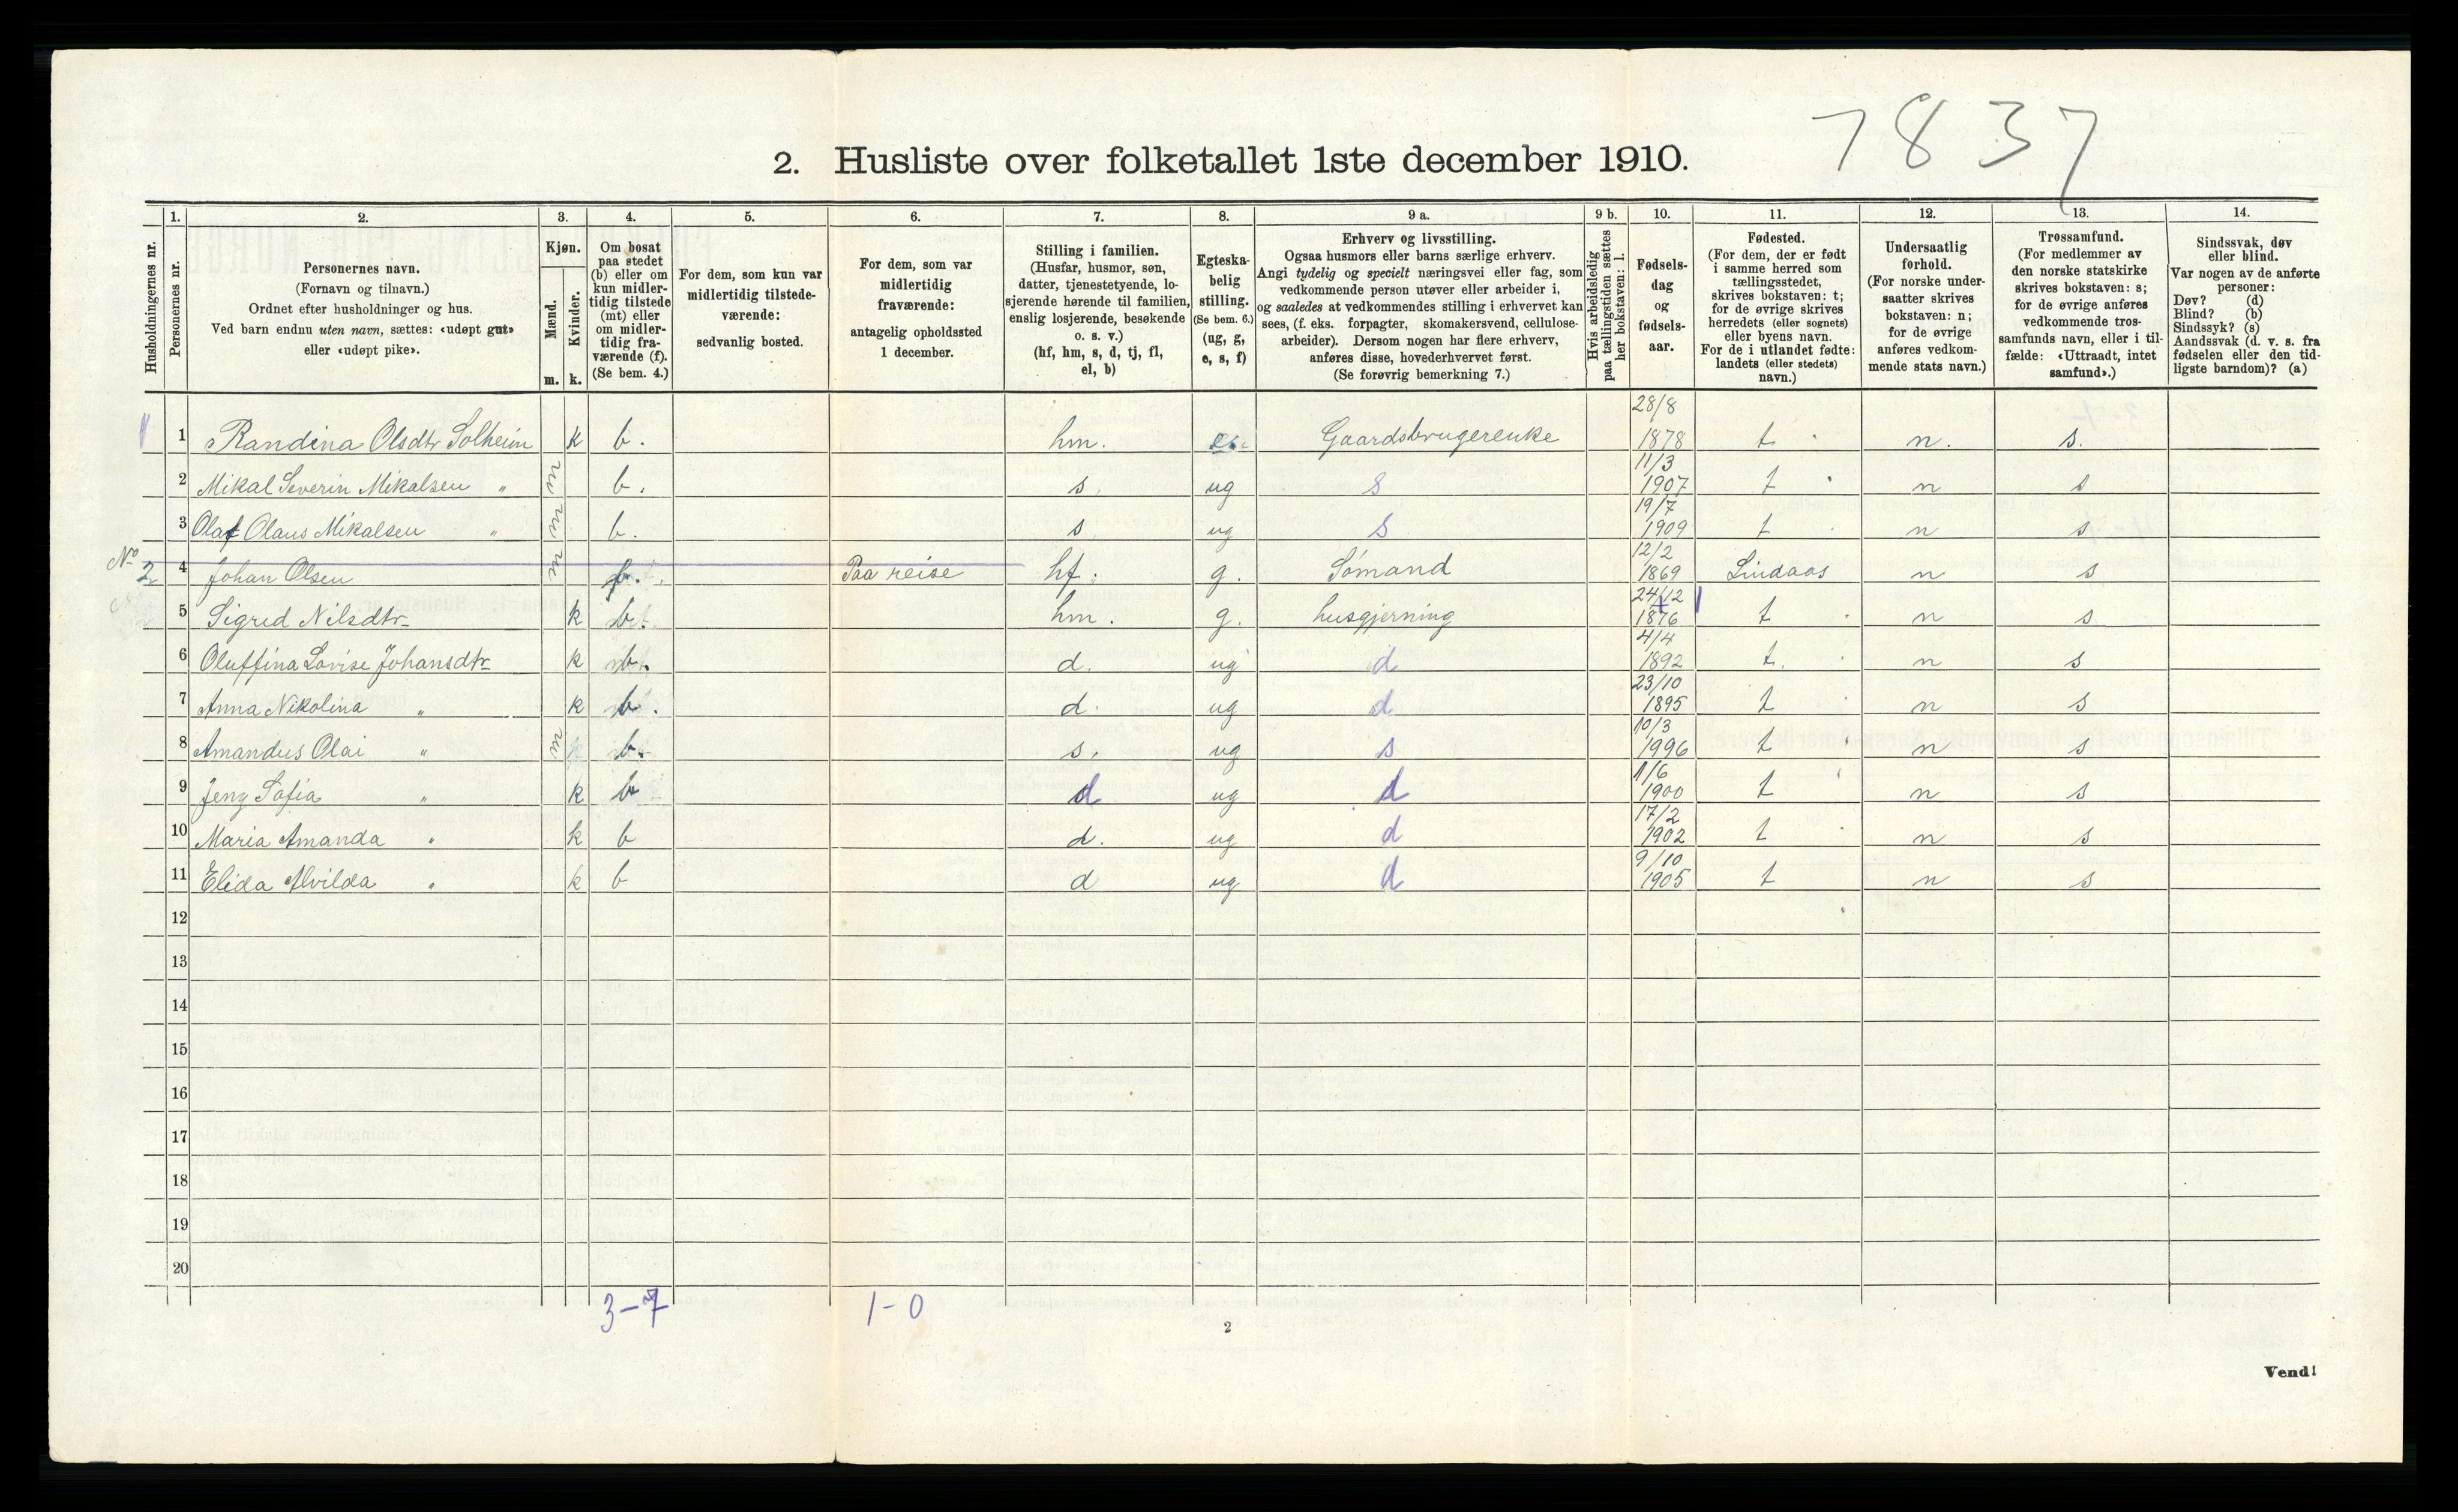 7837
2. Husliste over folketallet 1ste december 1910.
1. 2. 3. 4. 5. 6. 7. 8. 9 a. 9 b. 10. 11. 12. 13. 14.
Husholdningernes nr.
Personernes nr.
Personernes navn.
(Fornavn og tilnavn.)
Ordnet efter husholdninger og hus.
Ved barn endnu uten navn, sættes: «udøpt gut»
eller «udøpt pike».
Kjøn.
Mænd.
Kvinder.
m. k.
Om bosat
paa stedet
(b) eller om
kun midler-
tidig tilstede
(mt) eller
om midler-
tidig fra-
værende (f).
(Se bem. 4.)
For dem, som kun var
midlertidig tilstede-
værende:
sedvanlig bosted.
For dem, som var
midlertidig
fraværende:
antagelig opholdssted
1 december.
Stilling i familien.
(Husfar, husmor, søn,
datter, tjenestetyende, lo-
sjerende hørende til familien,
enslig losjerende, besøkende
o. s. v.)
(hf, hm, s, d, tj, fl,
el, b)
Egteska-
belig
stilling.
(Se bem. 6.)
(ug, g,
e, s, f)
Erhverv og livsstilling.
Ogsaa husmors eller barns særlige erhverv.
Angi tydelig og specielt næringsvei eller fag, som
vedkommende person utøver eller arbeider i,
og saaledes at vedkommendes stilling i erhvervet kan
sees, (f. eks. forpagter, skomakersvend, cellulose-
arbeider). Dersom nogen har flere erhverv,
anføres disse, hovederhvervet først.
(Se forøvrig bemerkning 7.)
Hvis arbeidsledig
paa tællingstiden sættes
her bokstaven: l.
Fødsels-
dag
og
fødsels-
aar.
Fødested.
(For dem, der er født
i samme herred som
tællingsstedet,
skrives bokstaven: t;
for de øvrige skrives
herredets (eller sognets)
eller byens navn.
For de i utlandet fødte:
landets (eller stedets)
navn.)
Undersaatlig
forhold.
(For norske under-
saatter skrives
bokstaven: n;
for de øvrige
anføres vedkom-
mende stats navn.)
Trossamfund.
(For medlemmer av
den norske statskirke
skrives bokstaven: s;
for de øvrige anføres
vedkommende tros-
samfunds navn, eller i til-
fælde: «Uttraadt, intet
samfund».)
Sindssvak, døv
eller blind.
Var nogen av de anførte
personer:
Døv? (d)
Blind? (b)
Sindssyk? (s)
Aandssvak (d. v. s. fra
fødselen eller den tid-
ligste barndom)? (a)
1 1 Randina Olsdtr Solheim k b. hm. Gaardsbrugerenke 28/8 1878 t n. s.
2 Mikal Severin Mikalsen " m b. s. ug s 11/3 1907 t n s
3 Olaf Olaus Mikalsen " m b. s ug s 19/7 1909 t n s
No 2 4 Johan Olsen m f. Paa reise hf. g. Sømand 12/2 1869 Lindaas n s
5 Sigrid Nilsdtr k b. hm. g. husgjerning 24/12 1876 t n s
6 Oluffina Lovise Johansdtr k b. d. ug d 4/4 1892 t. n s
7 Anna Nikolina " k b. d. ug d 23/10 1895 t n s
8 Amandus Olai " m b. s. ug s 10/3 1996 t n s
9 Jenz Sofia " k b d ug d 1/6 1900 t n s
10 Maria Amanda " k b d. ug d 17/2 1902 t n s
11 Elida Alvilda " k b d ug d 9/10 1905 t n s
12
13
14
15
16
17
18
19
20
3-7 1-0
2
Vend!